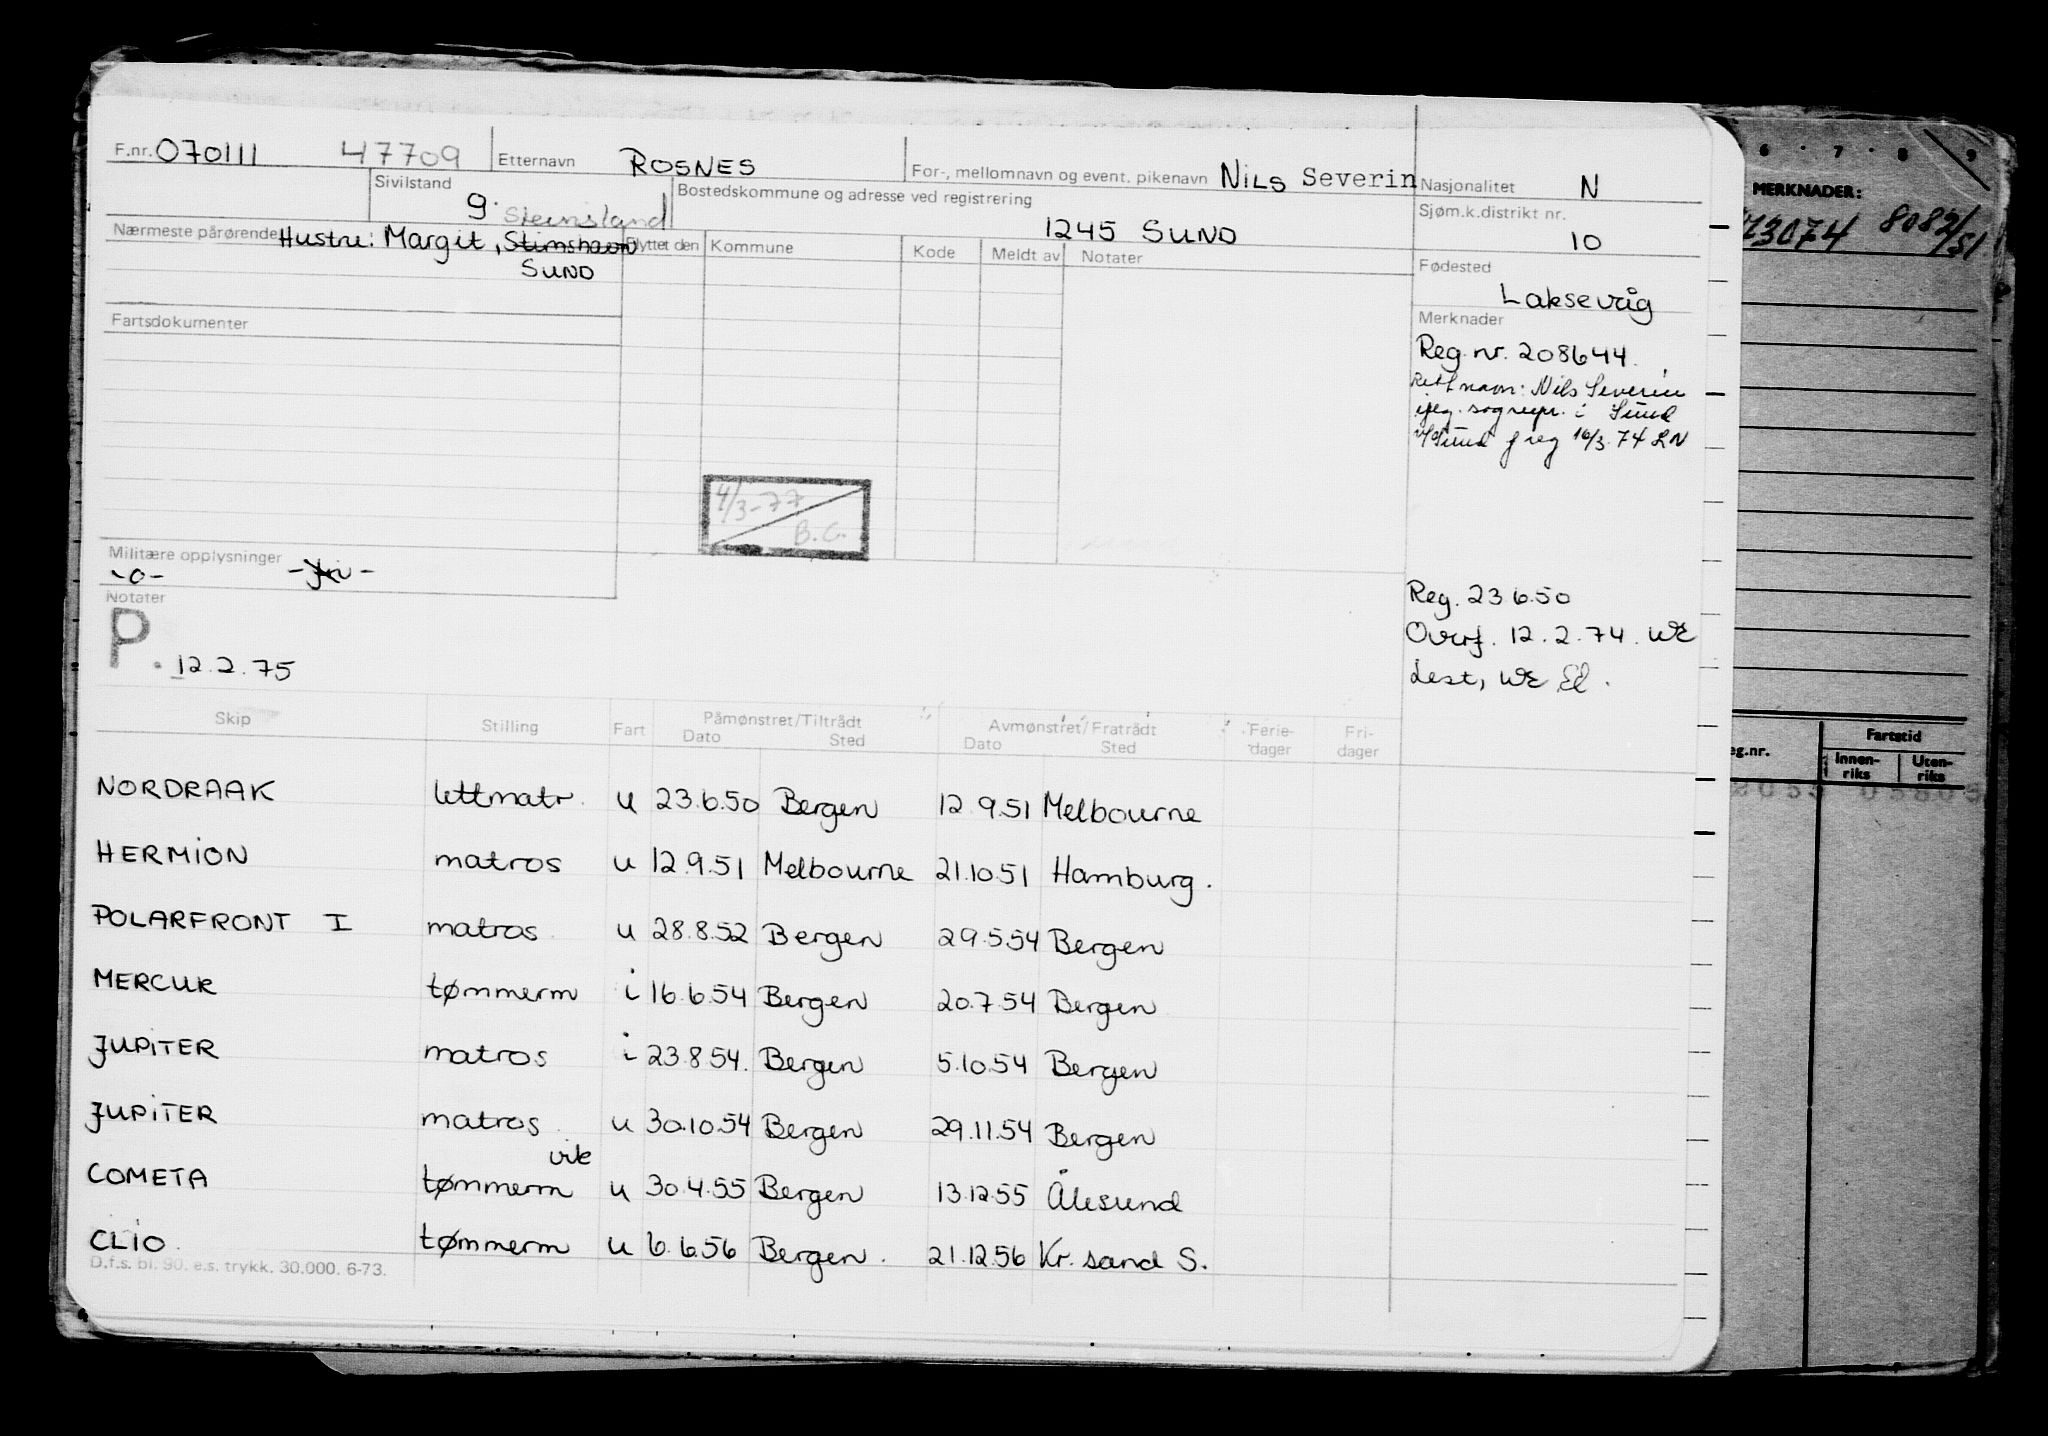 F.nr. 070111 47709 Etternavn ROSNES For-, mellomnavn og event. pikenavn NILS Severin Nasjonalitet N
Sivilstand g. Bostedskommune og adresse ved registrering 1245 SUND Sjøm.k.distrikt nr. 10
Steinsland
Nærmeste pårørende Hustru: Margit, Stimshavn
SUND
Flyttet den Kommune Kode Meldt av Notater
Fødested
Laksevåg
Fartsdokumenter
Merknader
Reg. nr. 208644.
Rett navn: Nils Severin
Sund
Sund reg 16/3.74 LN
4/3-77
B.C.
Militære opplysninger
-o-
Notater
P. 12.2.75
Reg. 23.6.50
Overf. 12.2.74. WE
Lest, WE El.
Skip Stilling Fart Påmønstret/Tiltrådt Dato Sted Avmønstret/Fratrådt Dato Sted Ferie-dager Fri-dager
NORDRAAK lettmatr. u 23.6.50 Bergen 12.9.51 Melbourne
HERMION matros u 12.9.51 Melbourne 21.10.51 Hamburg.
POLARFRONT I matros u 28.8.52 Bergen 29.5.54 Bergen
MERCUR tømmerm i 16.6.54 Bergen 20.7.54 Bergen
JUPITER matros i 23.8.54. Bergen 5.10.54 Bergen
JUPITER matros u 30.10.54 Bergen 29.11.54 Bergen
vik
COMETA tømmerm u 30.4.55 Bergen 13.12.55 Ålesund
CLIO tømmerm u 6.6.56 Bergen. 21.12.56 Kr. sand S.
D.f.s. bl. 90. e.s. trykk. 30.000. 6-73.
6 7 8 9
MERKNADER:
73074 8082/51
eg.nr. Fartstid
Innen-riks Uten-riks